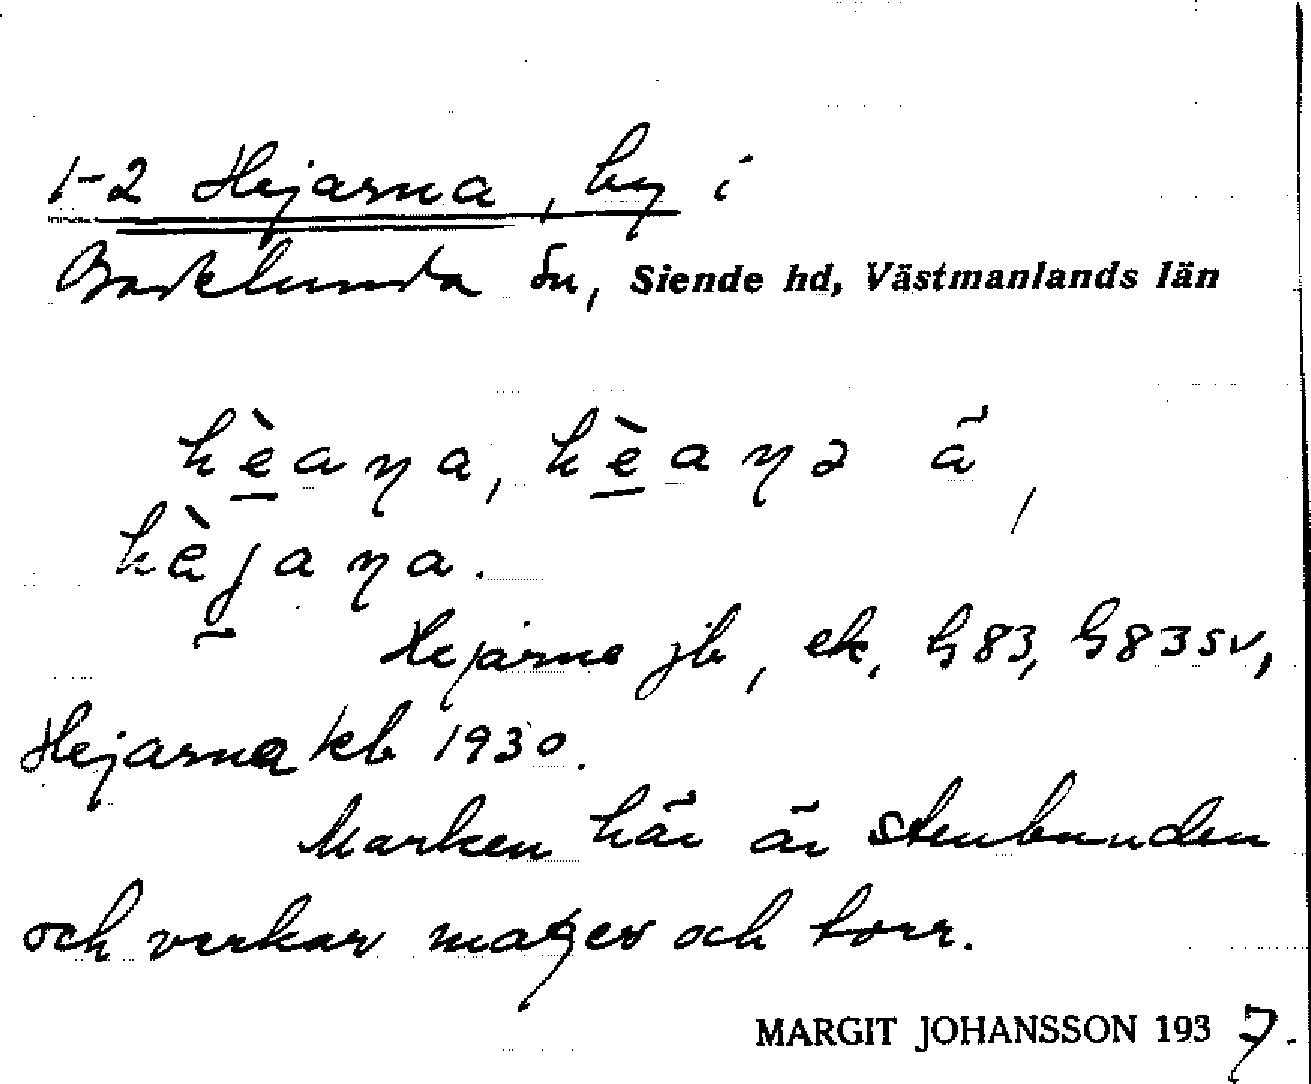 1-2 Hejarna, by i
Badelunda sn, Siende hd, Västmanlands län
hèaɳa, hèaɳə ã,
hèjaɳa.
Hejarne jb, ek. G83, G83sv,
Hejarna kb 1930.
Marken här är stenbunden
och verkar mager och torr.
MARGIT JOHANSSON 1937.